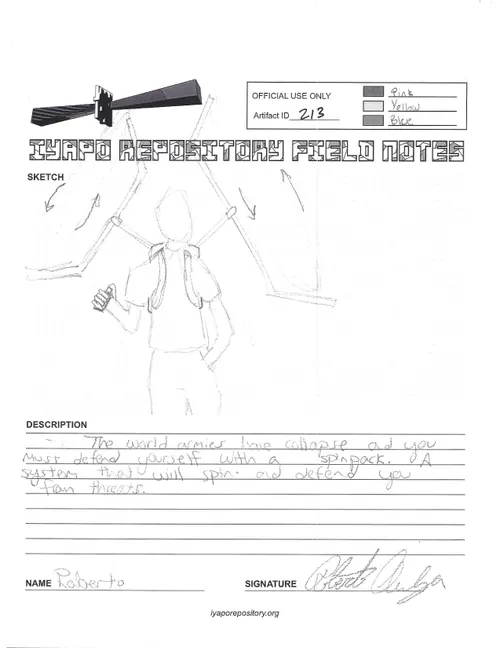 OFFICIAL USE ONLY
Artifact ID 213
Pink
Yellow
Blue
IYAPO REPOSITORY FIELD NOTES
SKETCH
DESCRIPTION
The world armies have collapse and you
must defend yourself with a spinpack. A
system that will spin and defend you
from threats.
NAME Roberto
SIGNATURE
iyaporepository.org